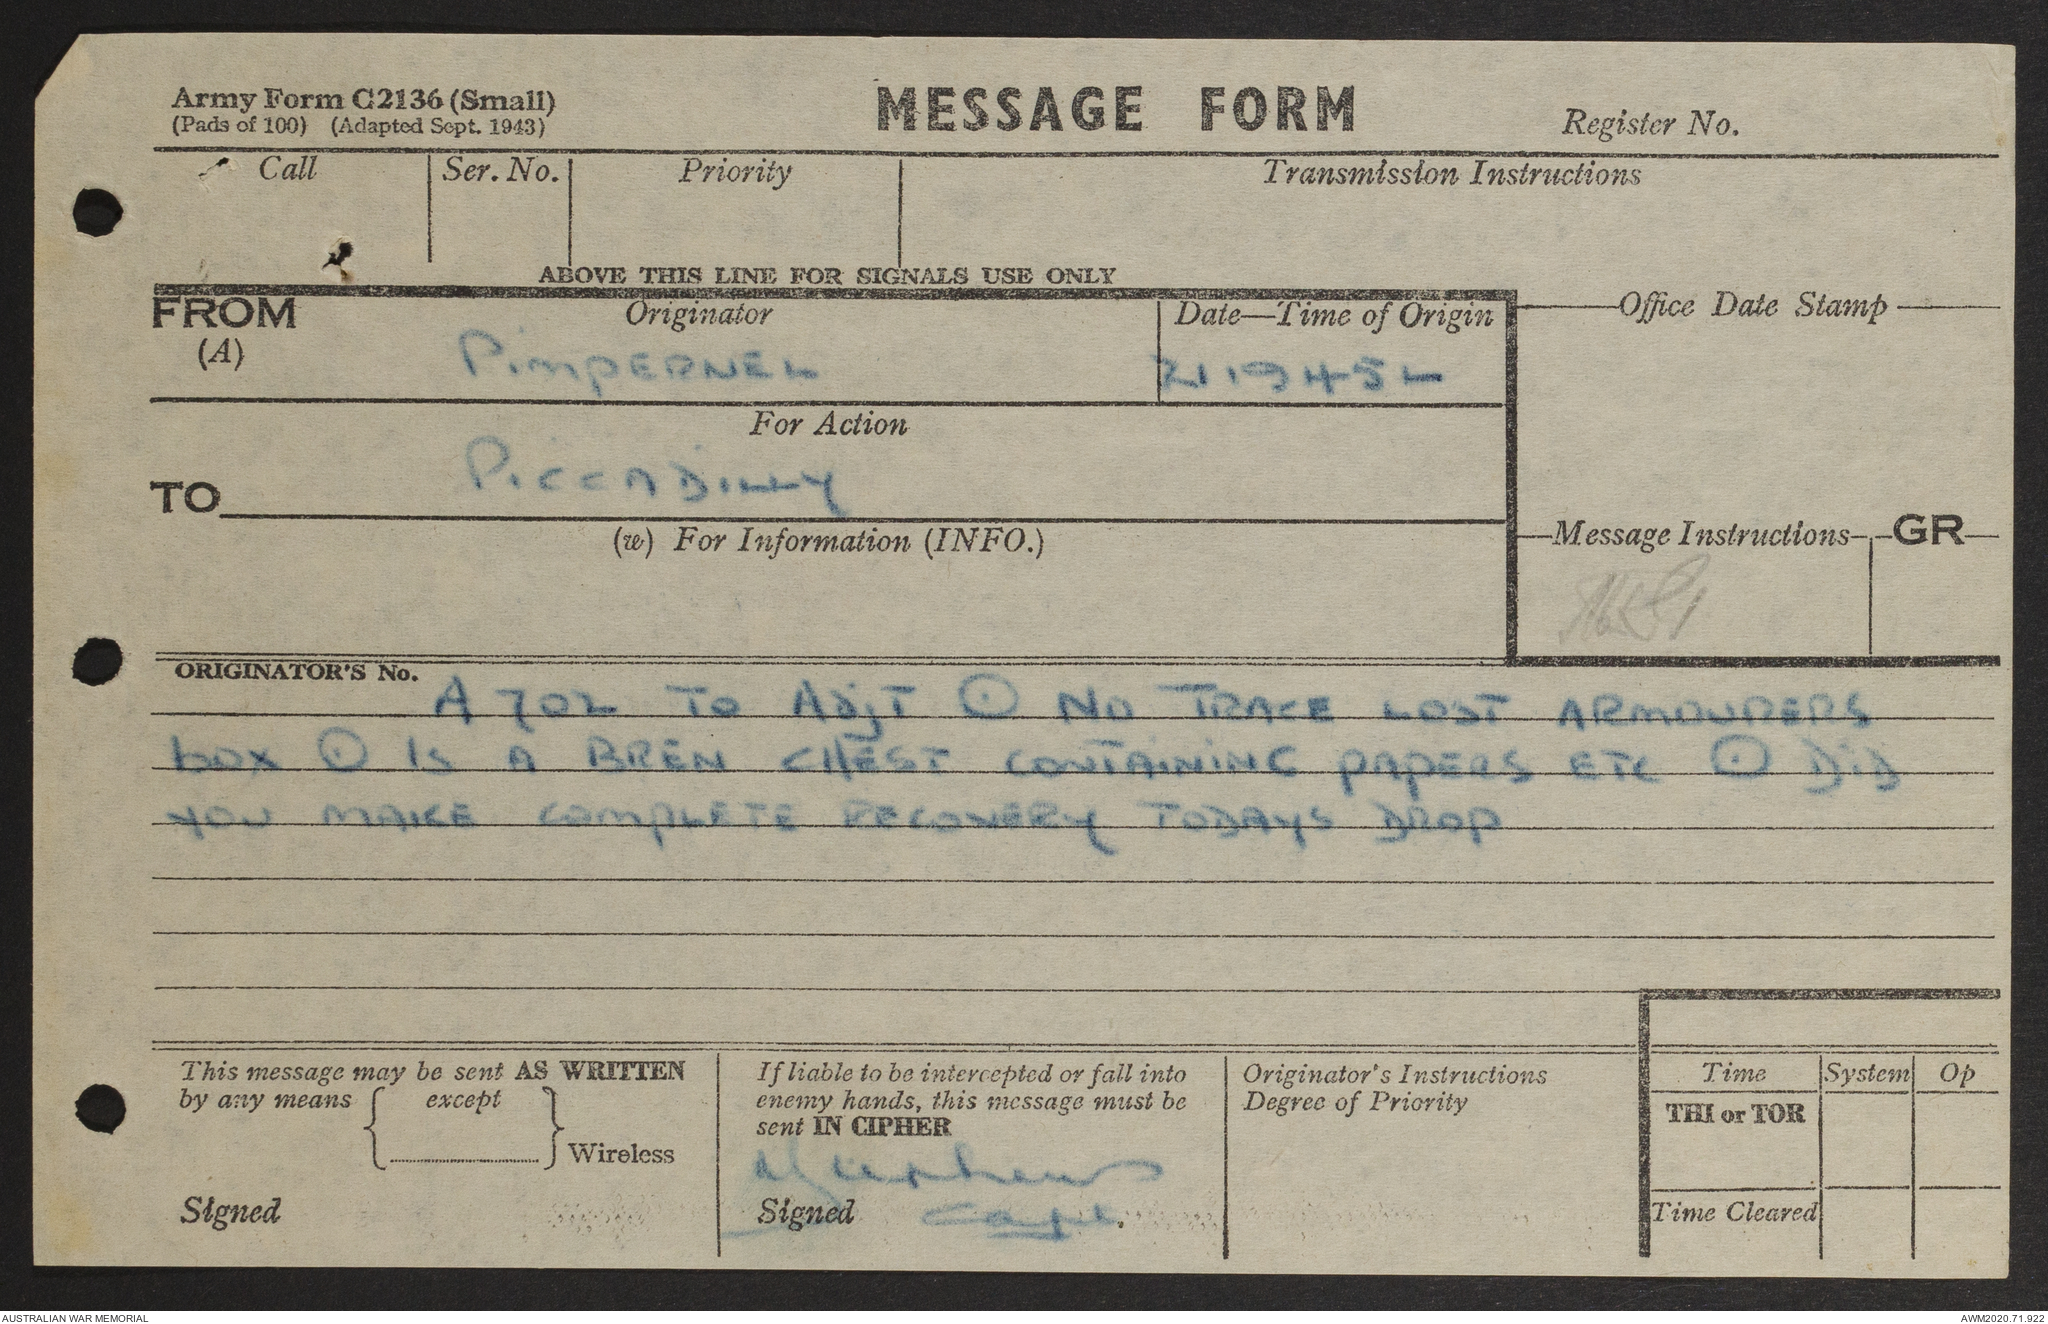 Army Form C2136 (Small)
(Pads of 100) (Adapted Sept. 1943)
MESSAGE FORM
Register No.
Call
Ser. No.
Priority
Transmission Instructions
ABOVE THIS LINE FOR SIGNALS USE ONLY
FROM
(A)
Originator
PimPERNEL
Date—Time of Origin
211945L
Office Date Stamp
For Action
TO
PiccADiLLY
(w) For Information (INFO.)
Message Instructions
GR
ORIGINATOR'S No.
A 702 TO AdjT ⊙ NO TRACE LOST ARMOURERS
box ⊙ IS A BREN CHEST CONTAINING PAPERS ETC ⊙ DiD
YOU MAKE COMPLETE RECOVERY TODAYS DROP
This message may be sent AS WRITTEN
by any means
except
Wireless
Signed
If liable to be intercepted or fall into
enemy hands, this message must be
sent IN CIPHER
Signed
Capt.
Originator's Instructions
Degree of Priority
Time
System
Op
THI or TOR
Time Cleared
AUSTRALIAN WAR MEMORIAL
AWM2020.71.922